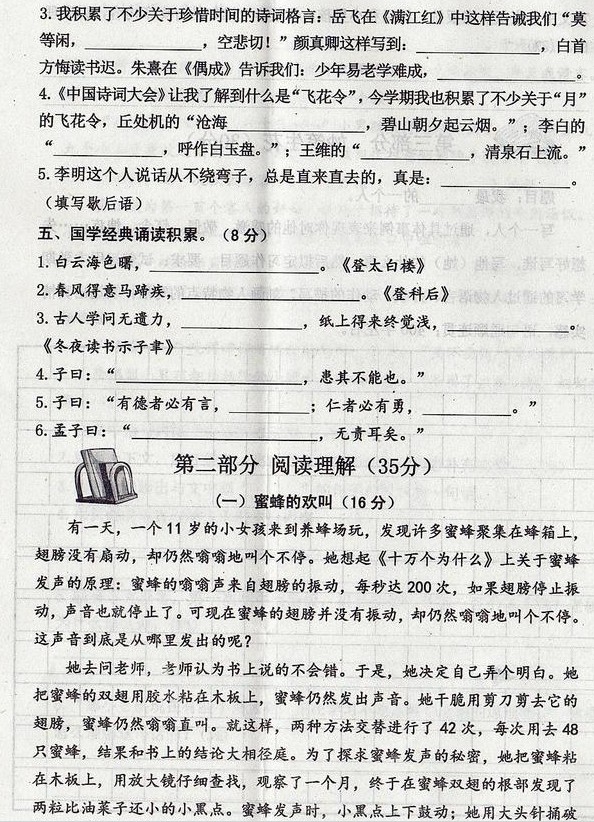 3.我积累了不少关于珍惜时间的诗词格言：岳飞在《满江红》中这样告诫我们“莫
等闲，____________，空悲切！”颜真卿这样写到：____________，白首
方悔读书迟。朱熹在《偶成》告诉我们：少年易老学难成，____________。
4.《中国诗词大会》让我了解到什么是“飞花令”，今学期我也积累了不少关于“月”
的飞花令，丘处机的“沧海____________，碧山朝夕起云烟。”；李白的
“____________，呼作白玉盘。”；王维的“____________，清泉石上流。”
5.李明这个人说话从不绕弯子，总是直来直去的，真是：____________。
（填写歇后语）
五、国学经典诵读积累。（8分）
1.白云海色曙，____________。《登太白楼》
2.春风得意马蹄疾，____________。《登科后》
3.古人学问无遗力，____________，纸上得来终觉浅，____________。
《冬夜读书示子聿》
4.子曰：“____________，患其不能也。”
5.子曰：“有德者必有言，________；仁者必有勇，________。”
6.孟子曰：“____________，无责耳矣。”
第二部分 阅读理解（35分）
（一）蜜蜂的欢叫（16分）
有一天，一个11岁的小女孩来到养蜂场玩，发现许多蜜蜂聚集在蜂箱上，
翅膀没有扇动，却仍然嗡嗡地叫个不停。她想起《十万个为什么》上关于蜜蜂
发声的原理：蜜蜂的嗡嗡声来自翅膀的振动，每秒达200次，如果翅膀停止振
动，声音也就停止了。可现在蜜蜂的翅膀并没有振动，却仍然嗡嗡地叫个不停。
这声音到底是从哪里发出的呢？
她去问老师，老师认为书上说的不会错。于是，她决定自己弄个明白。她
把蜜蜂的双翅用胶水粘在木板上，蜜蜂仍然发出声音。她干脆用剪刀剪去它的
翅膀，蜜蜂仍然嗡嗡直叫。就这样，两种方法交替进行了42次，每次用去48
只蜜蜂，结果和书上的结论大相径庭。为了探求蜜蜂发声的秘密，她把蜜蜂粘
在木板上，用放大镜仔细查找，观察了一个月，终于在蜜蜂双翅的根部发现了
两粒比油菜子还小的小黑点。蜜蜂发声时，小黑点上下鼓动；她用大头针捅破